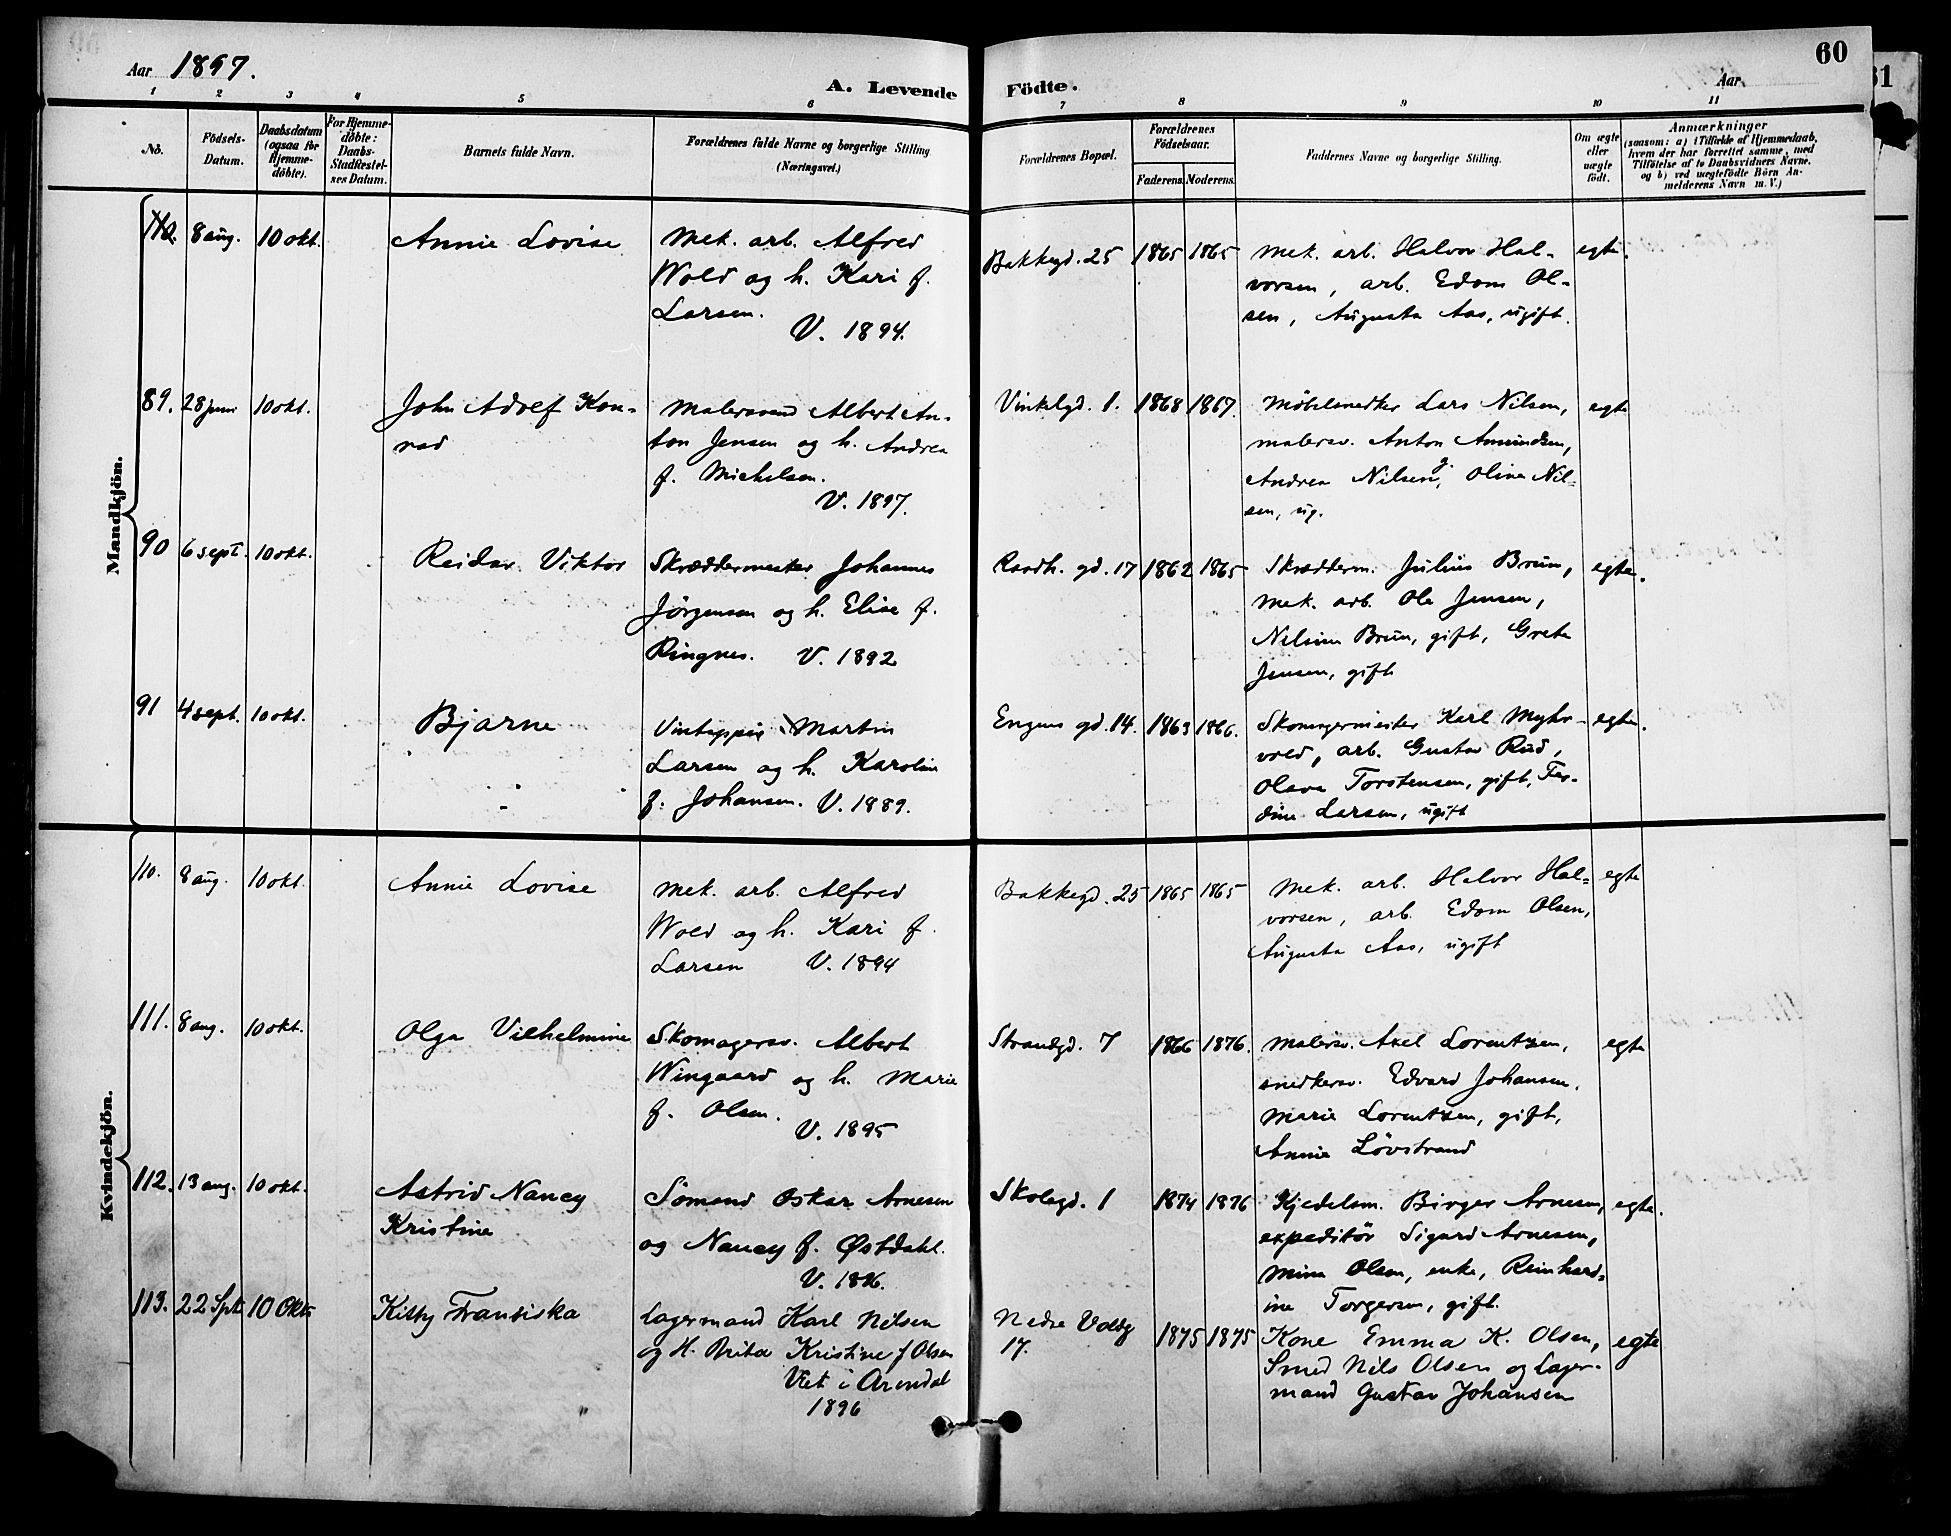 Aar 1897.
A. Levende Födte.
Aar
60
1 2 3 4 5 6 7 8 9 10 11
No.
Födsels-
Datum.
Daabsdatum
(ogsaa for
Hjemme-
döbte).
For Hjemme-
döbte:
Daabs-
Stadfæstel-
ses Datum.
Barnets fulde Navn.
Forældrenes fulde Navne og borgerlige Stilling
(Næringsvei.)
Forældrenes Bopæl.
Forældrenes
Födselsaar.
Faderens. Moderens.
Faddernes Navne og borgerlige Stilling.
Om ægte
eller
uægte
födt.
Anmærkninger
(saasom: a) i Tilfælde af Hjemmedaab,
hvem der har forrettet samme, med
Tilföielse af to Daabsvidners Navne.
og b) ved uægtefödte Börn An-
melderens Navn m. V.)
Mandkjön.
110. 8 aug. 10 okt.
Annie Lovise
Mek. arb. Alfred
Wold og h. Kari f.
Larsen.
V. 1894.
Bakkegd. 25 1865 1865
Mek. arb. Halvor Hal-
vorsen, arb. Edom Ol-
sen, Augusta Aas, ugift.
egte.
89. 28 juni 10 okt.
John Adolf Kon-
rad
Malersvend Albert An-
ton Jensen og h. Andrea
f. Michelsen.
V. 1897.
Vinkelgd. 1. 1868 1867.
Möbelsnedker Lars Nilsen,
malersv. Anton Amundsen,
Andrea Nilsen, g. Olina Nil-
sen, ug.
egte
90 6 sept. 10 okt.
Reidar Viktor
Skræddermester Johannes
Jörgensen og h. Elise f.
Ringnes. V. 1892
Raadh. gd. 17 1862 1865
Skrædderm. Julius Brun,
Mek. arb. Ole Jensen,
Nilsine Brun, gift, Grete
Jensen, gift
egte.
91 4 sept. 10 okt.
Bjarne
Vintapper Martin
Larsen og h. Karoline
f. Johansen. V. 1889.
Engens gd. 14. 1863 1866.
Skomagermester Karl Myhr-
vold, arb. Gustav Rud,
Olava Torstensen, gift, Fer-
dine Larsen, ugift
egte.
Kvindekjön.
110. 8 aug. 10 okt.
Annie Lovise
Mek. arb. Alfred
Wold og h. Kari f.
Larsen V. 1894
Bakkegd. 25 1865 1865
Mek. arb. Halvor Hal-
vorsen, arb. Edom Olsen,
Augusta Aas, ugift
egte
111. 8 aug. 10 okt.
Olga Vilhelmine
Skomagersv. Albert
Wingaard og h. Marie
f. Olsen.
V. 1895
Strandgd. 7 1866 1876.
Malersv. Axel Lorentzen,
snedkersv. Edvard Johansen,
Marie Lorentzen, gift,
Annie Lövstrand
egte
112. 13 aug. 10 okt.
Astrid Nancy
Kristine
Sömand Oskar Arnesen
og Nancy f. Østdahl.
V. 1896.
Skolegd. 1 1874 1876
Kjedelsm. Birger Arnesen,
expeditör Sigurd Arnesen,
Mina Olsen, enke, Reinhard-
ine Torgersen, gift.
egte.
113. 22 Spt. 10 Okt.
Kitty Fransiska
Lagermand Karl Nilsen
og H. Brita Kristine f Olsen
Viet i Arendal
1896
Nedre Voldg
17. 1875 1875
Kone Emma K. Olsen,
Smed Nils Olsen og Lager-
mand Gustav Johansen
egte